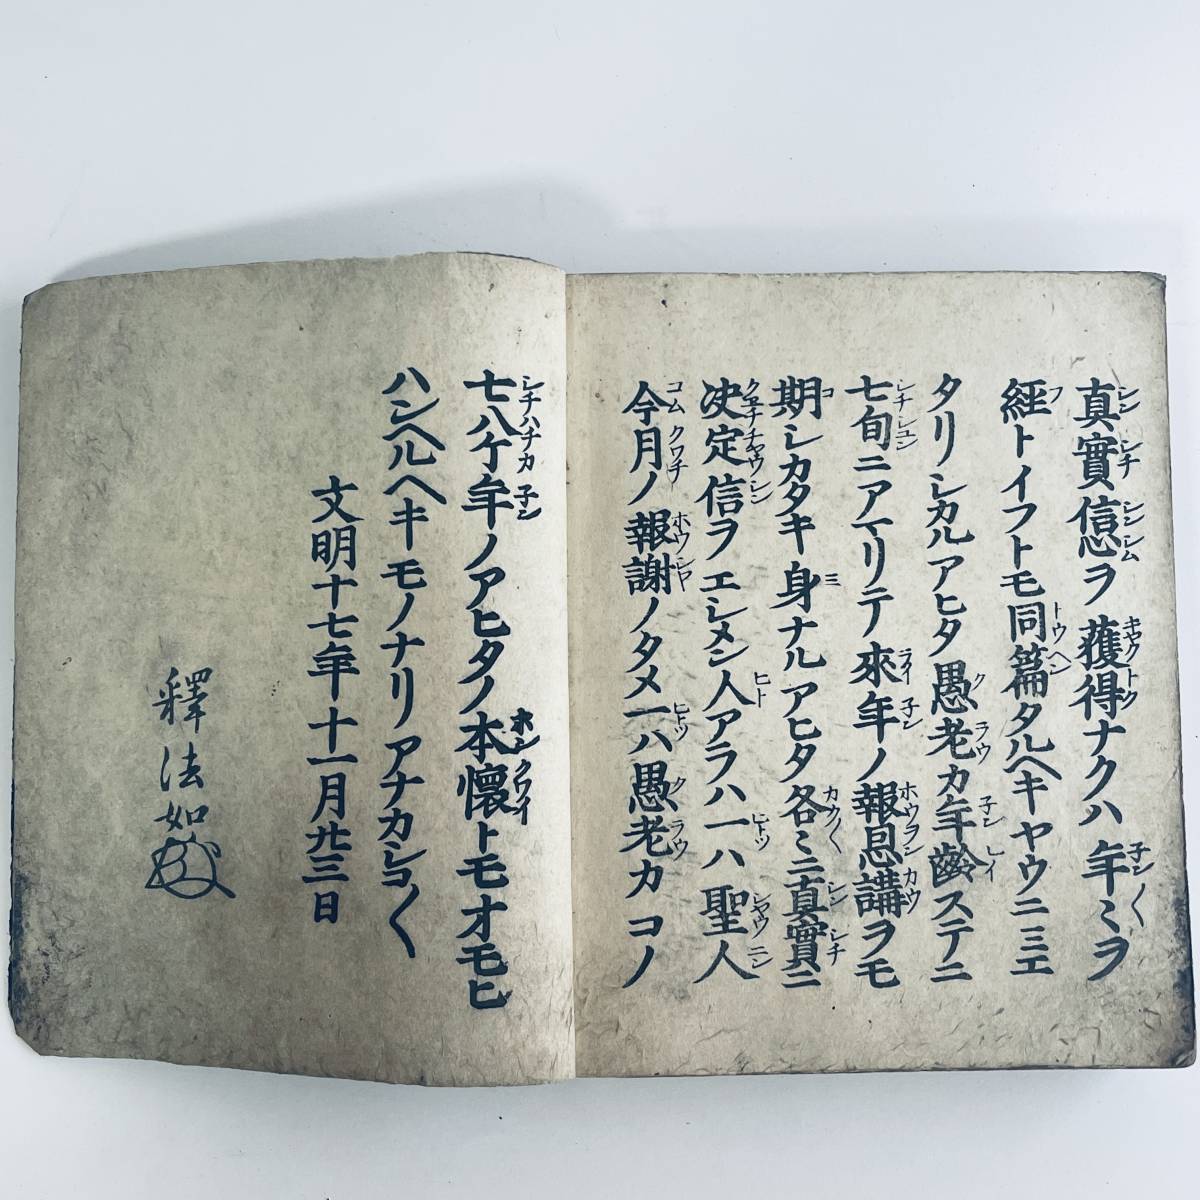 真實信心ヲ獲得ナクハ年ミヲ
經トイフトモ同篇タルヘキヤウニミエ
タリシカルアヒタ愚老カ年齡ステニ
七旬ニアマリテ來年ノ報恩講ヲモ
期シカタキ身ナルアヒタ各ミニ真實ニ
决定信ヲエシメン人アラハ一ハ聖人
今月ノ報謝ノタメ一ハ愚老カコノ
七八ケ年ノアヒタノ本懷トモオモヒ
ハンヘルヘキモノナリアナカシコ〱
文明十七年十一月廿三日
釋法如